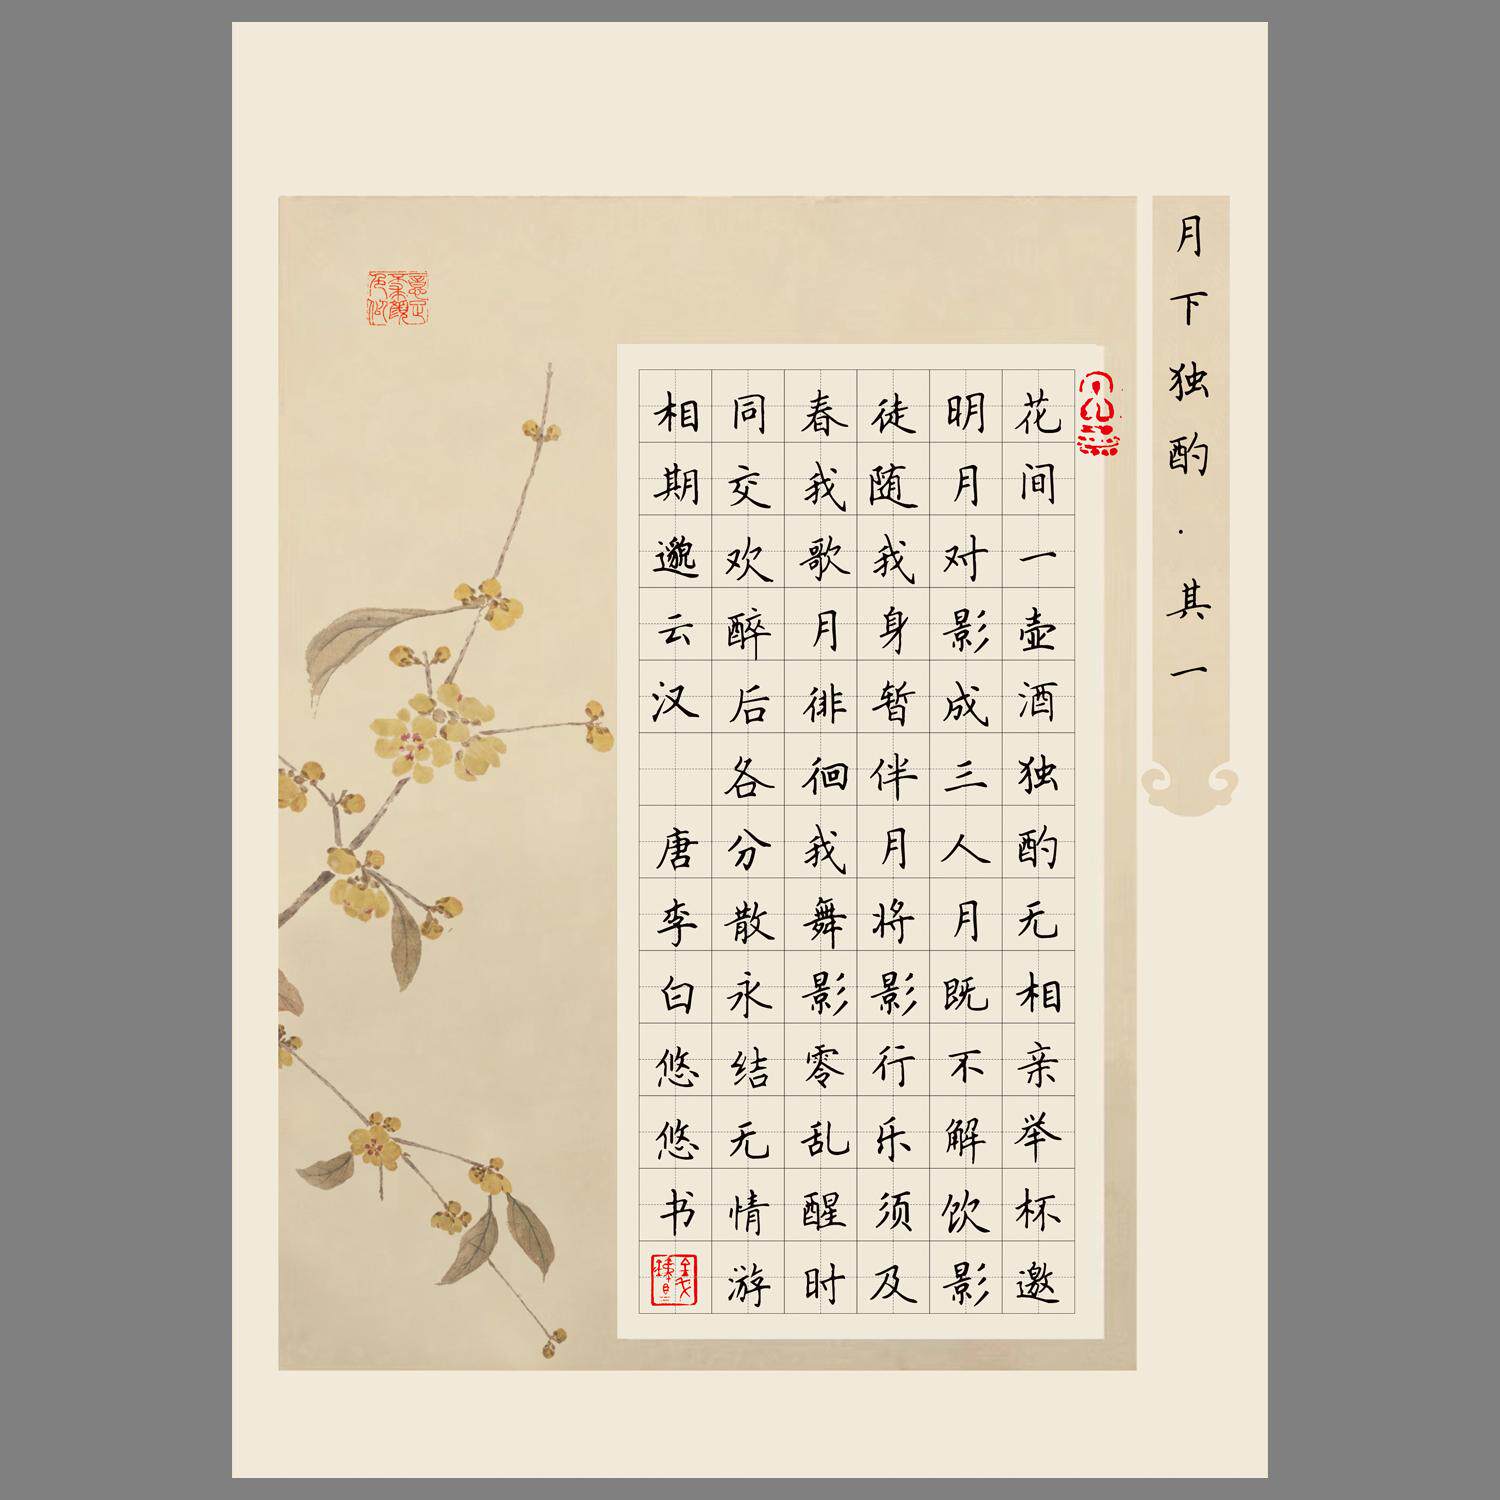 月下独酌·其一
花间一壶酒独酌无相亲举杯邀
明月对影成三人月既不解饮影
徒随我身暂伴月将影行乐须及
春我歌月徘徊我舞影零乱醒时
同交欢醉后各分散永结无情游
相期邈云汉 唐李白悠悠书